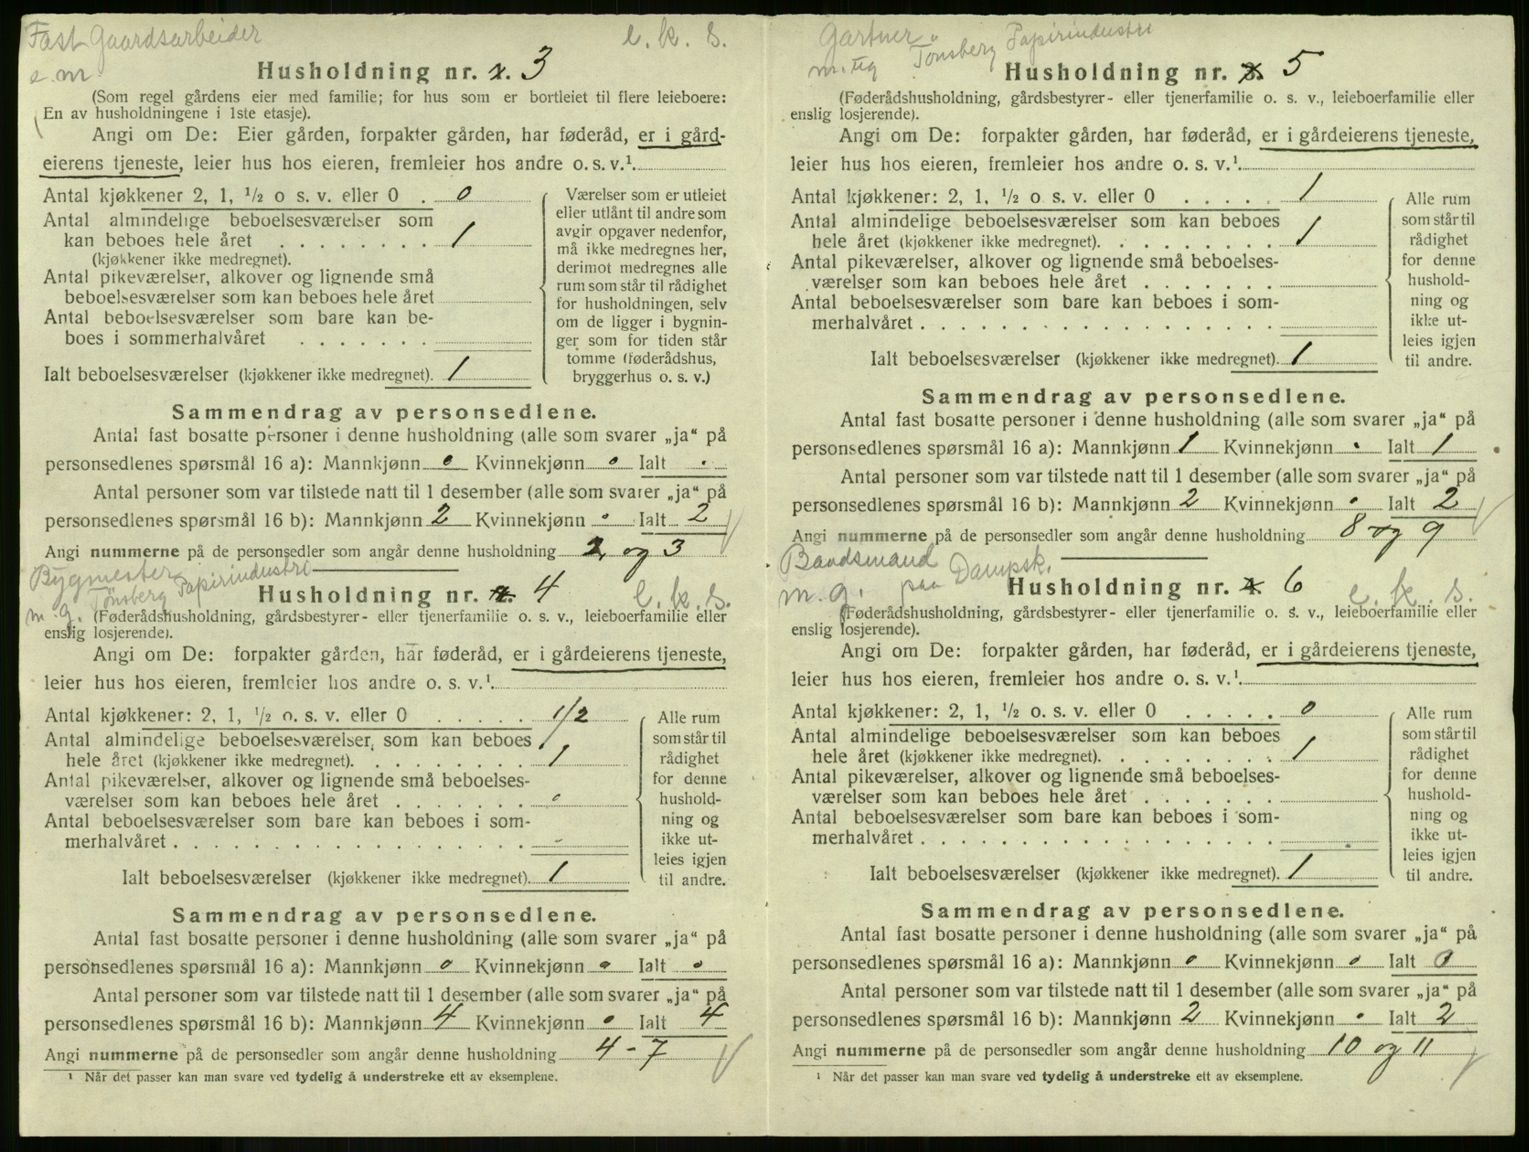 Fast Gaardsarbeider e. k. s.
e. m.
Husholdning nr. 3
(Som regel gårdens eier med familie; for hus som er bortleiet til flere leieboere:
En av husholdningene i 1ste etasje).
Angi om De: Eier gården, forpakter gården, har føderåd, er i gård-
eierens tjeneste, leier hus hos eieren, fremleier hos andre o. s. v.¹
Antal kjøkkener 2, 1, ½ o s. v. eller 0 . 0
Antal almindelige beboelsesværelser som
kan beboes hele året . . . . . . . . 1
(kjøkkener ikke medregnet).
Antal pikeværelser, alkover og lignende små
beboelsesværelser som kan beboes hele året
Antal beboelsesværelser som bare kan be-
boes i sommerhalvåret . . . . . . .
Ialt beboelsesværelser (kjøkkener ikke medregnet). 1
Værelser som er utleiet
eller utlånt til andre som
avgir opgaver nedenfor,
må ikke medregnes her,
derimot medregnes alle
rum som står til rådighet
for husholdningen, selv
om de ligger i bygnin-
ger som for tiden står
tomme (føderådshus,
bryggerhus o. s. v.)
Sammendrag av personsedlene.
Antal fast bosatte personer i denne husholdning (alle som svarer „ja“ på
personsedlenes spørsmål 16 a): Mannkjønn 0 Kvinnekjønn 0 Ialt .
Antal personer som var tilstede natt til 1 desember (alle som svarer „ja“ på
personsedlenes spørsmål 16 b): Mannkjønn 2 Kvinnekjønn 0 Ialt 2
Angi nummerne på de personsedler som angår denne husholdning 2 og 3
Bygmester
m. g. Tönsberg Papirindustri
Husholdning nr. 4 e. k. s.
(Føderådshusholdning, gårdsbestyrer- eller tjenerfamilie o. s. v., leieboerfamilie eller
enslig losjerende).
Angi om De: forpakter gården, har føderåd, er i gårdeierens tjeneste,
leier hus hos eieren, fremleier hos andre o. s. v.¹
Antal kjøkkener: 2, 1, ½ o. s. v. eller 0 . . . . . 1/2
Antal almindelige beboelsesværelser, som kan beboes
hele året (kjøkkener ikke medregnet). . . . . . . . . 1
Antal pikeværelser, alkover og lignende små beboelses-
værelser som kan beboes hele året . . . . . . . 0
Antal beboelsesværelser som bare kan beboes i som-
merhalvåret . . . . . . . . . . . . . . . . . -
Ialt beboelsesværelser (kjøkkener ikke medregnet). 1
Alle rum
som står til
rådighet
for denne
hushold-
ning og
ikke ut-
leies igjen
til andre.
Sammendrag av personsedlene.
Antal fast bosatte personer i denne husholdning (alle som svarer „ja“ på
personsedlenes spørsmål 16 a): Mannkjønn 0 Kvinnekjønn 0 Ialt 0
Antal personer som var tilstede natt til 1 desember (alle som svarer „ja“ på
personsedlenes spørsmål 16 b): Mannkjønn 4 Kvinnekjønn 0 Ialt 4
Angi nummerne på de personsedler som angår denne husholdning 4-7
¹ Når det passer kan man svare ved tydelig å understreke ett av eksemplene.
Gartner å Tönsberg Papirindustri
m. ug
Husholdning nr. 5
(Føderådshusholdning, gårdsbestyrer- eller tjenerfamilie o. s. v., leieboerfamilie eller
enslig losjerende).
Angi om De: forpakter gården, har føderåd, er i gårdeierens tjeneste,
leier hus hos eieren, fremleier hos andre o. s. v.¹
Antal kjøkkener: 2, 1, ½ o. s. v. eller 0 . . . . . 1
Antal almindelige beboelsesværelser som kan beboes
hele året (kjøkkener ikke medregnet). . . . . . . . . 1
Antal pikeværelser, alkover og lignende små beboelses-
værelser som kan beboes hele året . . . . . . .
Antal beboelsesværelser som bare kan beboes i som-
merhalvåret . . . . . . . . . . . . . . . . .
Ialt beboelsesværelser (kjøkkener ikke medregnet). 1
Alle rum
som står til
rådighet
for denne
hushold-
ning og
ikke ut-
leies igjen
til andre.
Sammendrag av personsedlene.
Antal fast bosatte personer i denne husholdning (alle som svarer „ja“ på
personsedlenes spørsmål 16 a): Mannkjønn 1 Kvinnekjønn . Ialt 1
Antal personer som var tilstede natt til 1 desember (alle som svarer „ja“ på
personsedlenes spørsmål 16 b): Mannkjønn 2 Kvinnekjønn 0 Ialt 2
Angi nummerne på de personsedler som angår denne husholdning 8 og 9
Baadsmand paa Dampsk.
m. g.
Husholdning nr. 6 e. k. s.
(Føderådshusholdning, gårdsbestyrer- eller tjenerfamilie o. s. v., leieboerfamilie eller
enslig losjerende).
Angi om De: forpakter gården, har føderåd, er i gårdeierens tjeneste,
leier hus hos eieren, fremleier hos andre o. s. v.¹
Antal kjøkkener: 2, 1, ½ o. s. v. eller 0 . . . . . 0
Antal almindelige beboelsesværelser som kan beboes
hele året (kjøkkener ikke medregnet). . . . . . . . . 1
Antal pikeværelser, alkover og lignende små beboelses-
værelser som kan beboes hele året . . . . . . .
Antal beboelsesværelser som bare kan beboes i som-
merhalvåret . . . . . . . . . . . . . . . . .
Ialt beboelsesværelser (kjøkkener ikke medregnet). 1
Alle rum
som står til
rådighet
for denne
hushold-
ning og
ikke ut-
leies igjen
til andre.
Sammendrag av personsedlene.
Antal fast bosatte personer i denne husholdning (alle som svarer „ja“ på
personsedlenes spørsmål 16 a): Mannkjønn 0 Kvinnekjønn 0 Ialt 0
Antal personer som var tilstede natt til 1 desember (alle som svarer „ja“ på
personsedlenes spørsmål 16 b): Mannkjønn 2 Kvinnekjønn . Ialt 2
Angi nummerne på de personsedler som angår denne husholdning 10 og 11
¹ Når det passer kan man svare ved tydelig å understreke ett av eksemplene.